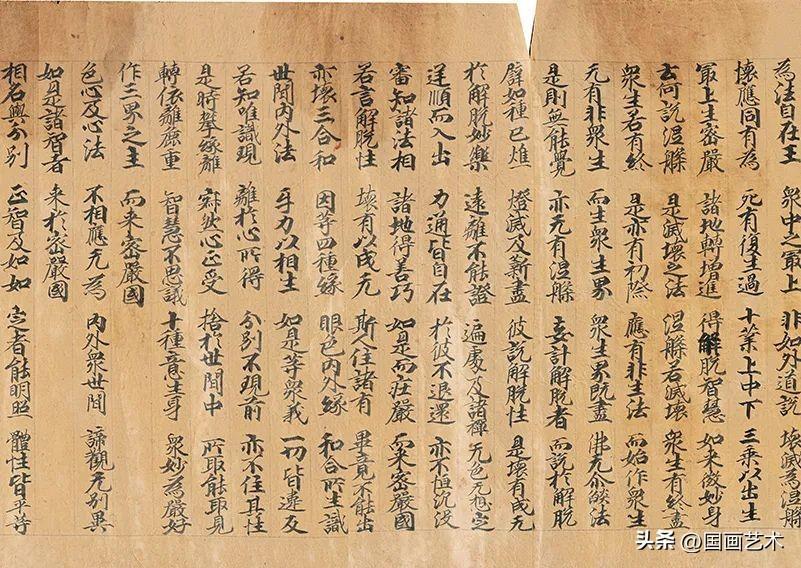 為法自在王 眾中之最上 非如外道說 壞滅為涅槃
壞應同有為 死有復生過 十業上中下 三乘以出生
最上生密嚴 諸地轉增進 得解脫智慧 如來微妙身
云何說涅槃 是滅壞之法 涅槃若滅壞 眾生有終盡
眾生若有終 是亦有初際 應有非生法 而始作眾生
无有非眾生 而生眾生界 眾生界既盡 佛无尒焰法
是則無能覺 亦无有涅槃 妄計解脫者 而說於解脫
譬如種已燋 燈滅及薪盡 彼說解脫性 是壞有成无
於解脫妙樂 遠離不能證 遍處及諸禪 无色无想定
逆順而入出 力通皆自在 於彼不退還 亦不恒沉沒
審知諸法相 諸地得善巧 如是而莊嚴 而來密嚴國
若言解脫性 壞有以成无 斯人住諸有 畢竟不能出
亦壞三合和 因等四種緣 眼色內外緣 和合所生識
世間內外法 互力以相生 如是等眾義 一切皆違反
若知唯識現 離於心所得 分別不現前 亦不住其性
是時攀緣離 寂然心正受 捨於世間中 所取能取見
轉依離麁重 智慧不思議 十種意生身 眾妙為嚴好
作三界之主 而來密嚴國
色心及心法 不相應无為 內外眾世間 諦觀无別異
如是諸智者 來於密嚴國
相名與分別 正智及如如 定者能明照 體性皆平等
头条 @国画艺术